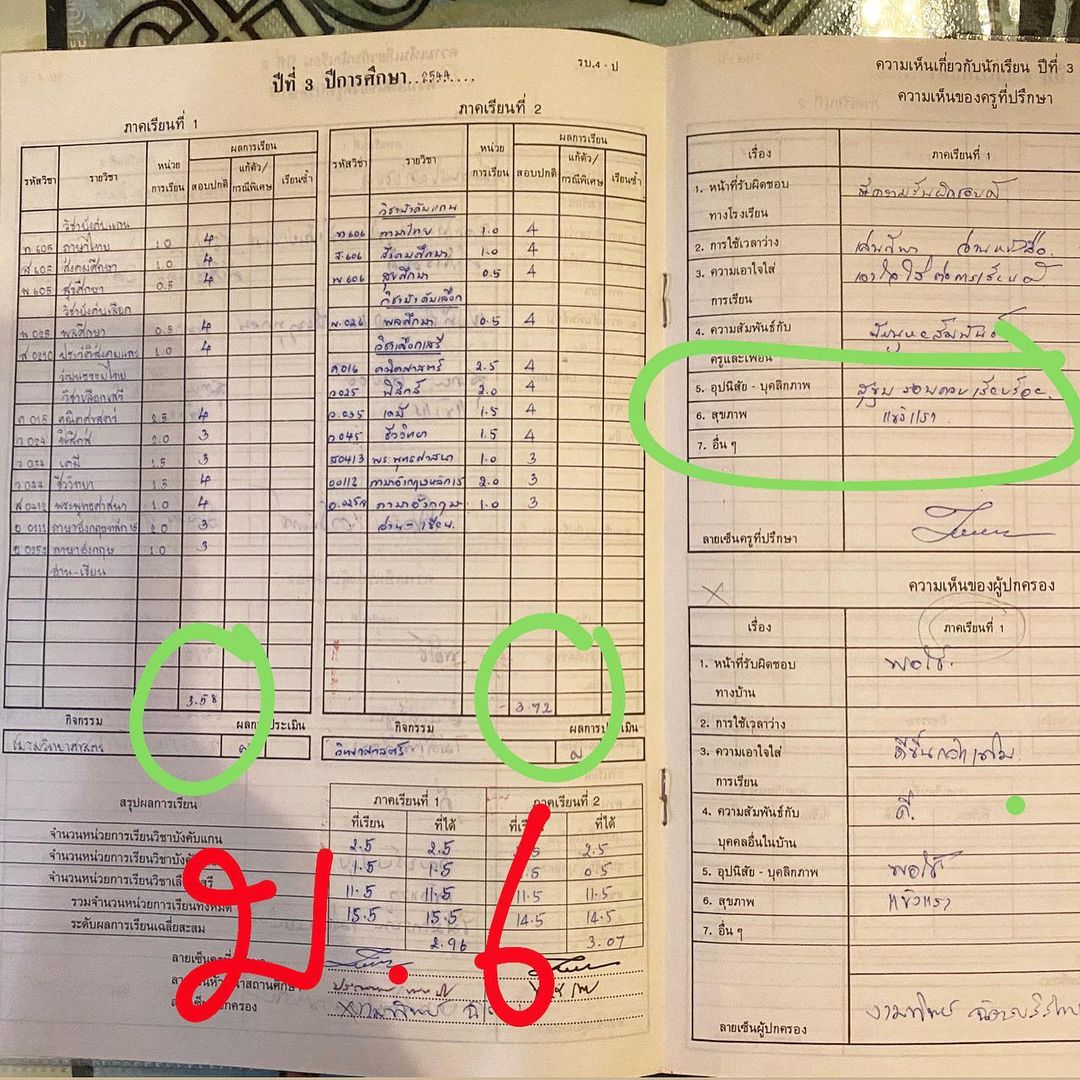 รบ.4 - ป
ปีที่ 3 ปีการศึกษา..2544........
ภาคเรียนที่ 1
ภาคเรียนที่ 2
รหัสวิชา รายวิชา หน่วยการเรียน ผลการเรียน สอบปกติ เรียนซ้ำ
รหัสวิชา รายวิชา หน่วยการเรียน ผลการเรียน สอบปกติ แก้ตัว/กรณีพิเศษ เรียนซ้ำ
วิชาบังคับแกน
ท 605 ภาษาไทย 1.0 4
ส 605 สังคมศึกษา 1.0 4
พ 605 สุขศึกษา 0.5 4
วิชาบังคับเลือก
พ 025 พลศึกษา 0.5 4
ส 0210 1.0 4
วัฒนธรรมไทย
วิชาเลือกเสรี
ค 015 คณิตศาสตร์ 2.5 4
ว 024 ฟิสิกส์ 2.0 3
ว 034 เคมี 1.5 3
ว 044 ชีววิทยา 1.5 4
พระพุทธศาสนา 1.0 4
อ 0111 ภาษาอังกฤษหลัก 2.0 3
ภาษาอังกฤษ 1.0 3
อ่าน-เขียน
3.58
วิชาบังคับแกน
ท 606 ภาษาไทย 1.0 4
ส 606 สังคมศึกษา 1.0 4
พ 606 สุขศึกษา 0.5 4
วิชาบังคับเลือก
พ.026 พลศึกษา 0.5 4
วิชาเลือกเสรี
ค 016 คณิตศาสตร์ 2.5 4
ว 025 ฟิสิกส์ 2.0 4
ว.035 เคมี 1.5 4
ว 045 ชีววิทยา 1.5 4
ส 0413 พระพุทธศาสนา 1.0 3
อ 0112 ภาษาอังกฤษหลัก 2.0 3
ภาษาอังกฤษ 1.0 3
อ่าน - เขียน
3.72
กิจกรรม ผลการประเมิน
ชมรมวิทยาศาสตร์ ผ
กิจกรรม
วิทยาศาสตร์ ผ
สรุปผลการเรียน
ภาคเรียนที่ 1 ภาคเรียนที่ 2
ที่เรียน ที่ได้ ที่ได้
จำนวนหน่วยการเรียนวิชาบังคับแกน 2.5 2.5 2.5
1.5 1.5 0.5
11.5 11.5 11.5 11.5
รวมจำนวนหน่วยการเรียนทั้งหมด 15.5 15.5 14.5 14.5
ระดับผลการเรียนเฉลี่ยสะสม 2.96 3.07
ม.6
ความเห็นเกี่ยวกับนักเรียน ปีที่ 3
ความเห็นของครูที่ปรึกษา
เรื่อง ภาคเรียนที่ 1
1. หน้าที่รับผิดชอบ มีความรับผิดชอบดี
ทางโรงเรียน
2. การใช้เวลาว่าง เล่นกีฬา อ่านหนังสือ
3. ความเอาใจใส่ เอาใจใส่ต่อการเรียนดี
การเรียน
4. ความสัมพันธ์กับ
ครูและเพื่อน
5. อุปนิสัย - บุคลิกภาพ สุขุม รอบคอบ เรียบร้อย
6. สุขภาพ แข็งแรง
7. อื่น ๆ
ลายเซ็นครูที่ปรึกษา
ความเห็นของผู้ปกครอง
เรื่อง ภาคเรียนที่ 1
1. หน้าที่รับผิดชอบ พอใช้.
ทางบ้าน
2. การใช้เวลาว่าง
3. ความเอาใจใส่ ดีขึ้นกว่าเดิม
การเรียน
4. ความสัมพันธ์กับ ดี.
บุคคลอื่นในบ้าน
5. อุปนิสัย - บุคลิกภาพ พอใช้
6. สุขภาพ แข็งแรง
7. อื่น ๆ
ลายเซ็นผู้ปกครอง